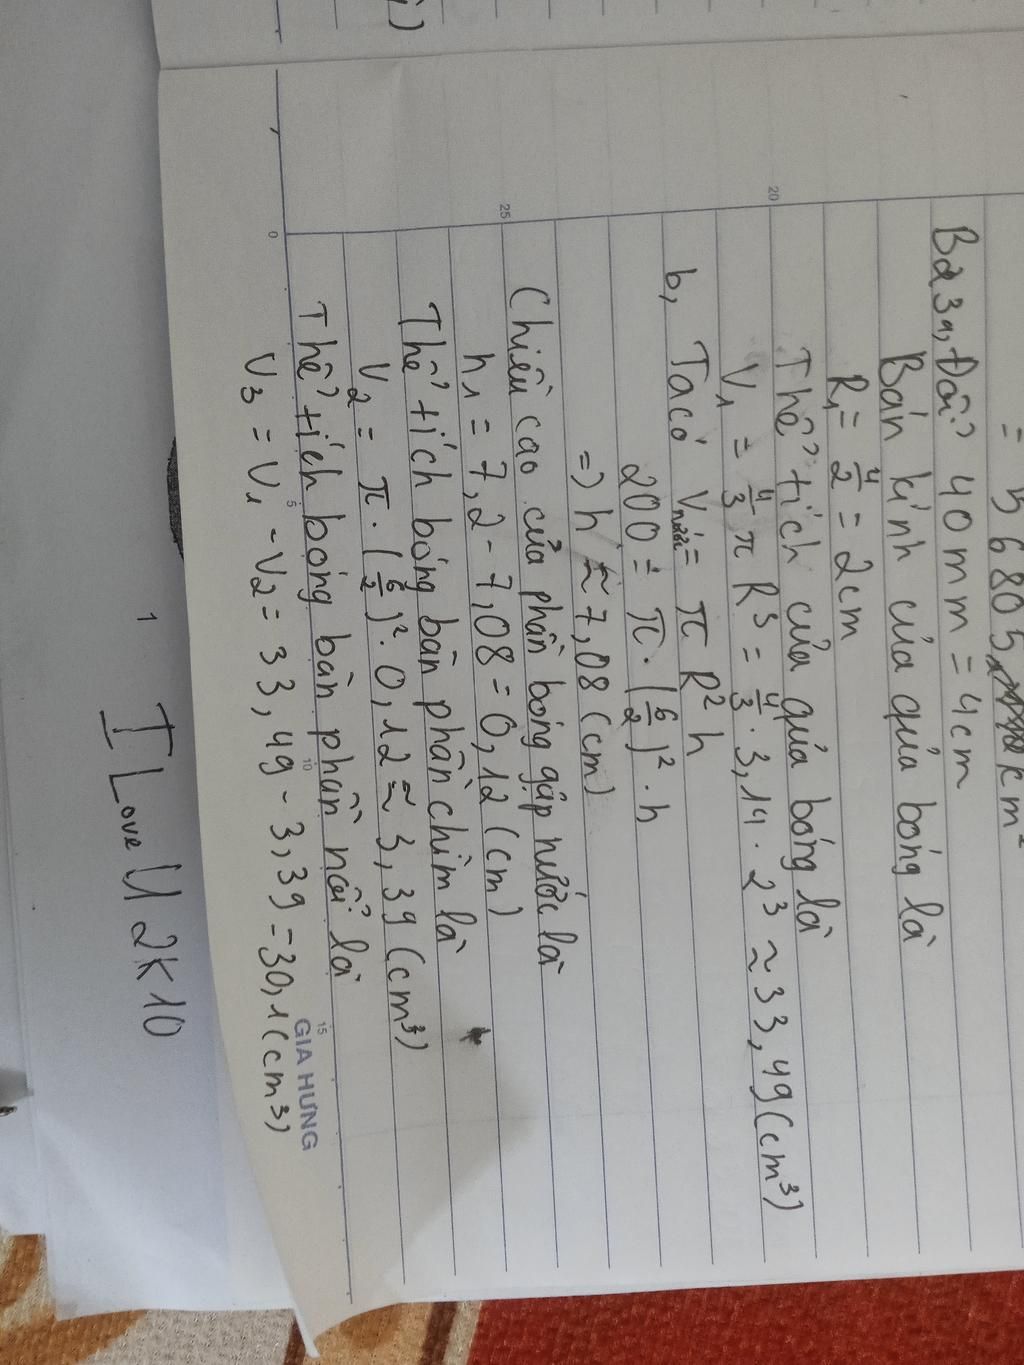 = 5 6805 km²
Bài 3a, Đổi 40mm = 4cm
Bán kính của qủa bóng là
R₁ = 4/2 = 2cm
Thể tích của qủa bóng là
V₁ = 4/3 π R³ = 4/3 . 3,14 . 2³ ≈ 33,49 (cm³)
b, Ta có Vnước = π R² h
200 = π . (6/2)² . h
=> h ≈ 7,08 (cm)
Chiều cao của phần bóng gập nước là
h₁ = 7,2 - 7,08 = 0,12 (cm)
Thể tích bóng bàn phần chìm là
V₂ = π . (6/2)² . 0,12 ≈ 3,39 (cm³)
Thể tích bóng bàn phần nổi là
V₃ = V₁ - V₂ = 33,49 - 3,39 = 30,1 (cm³)
20
25
0
5
10
15
GIA HƯNG
1
I Love U 2K10